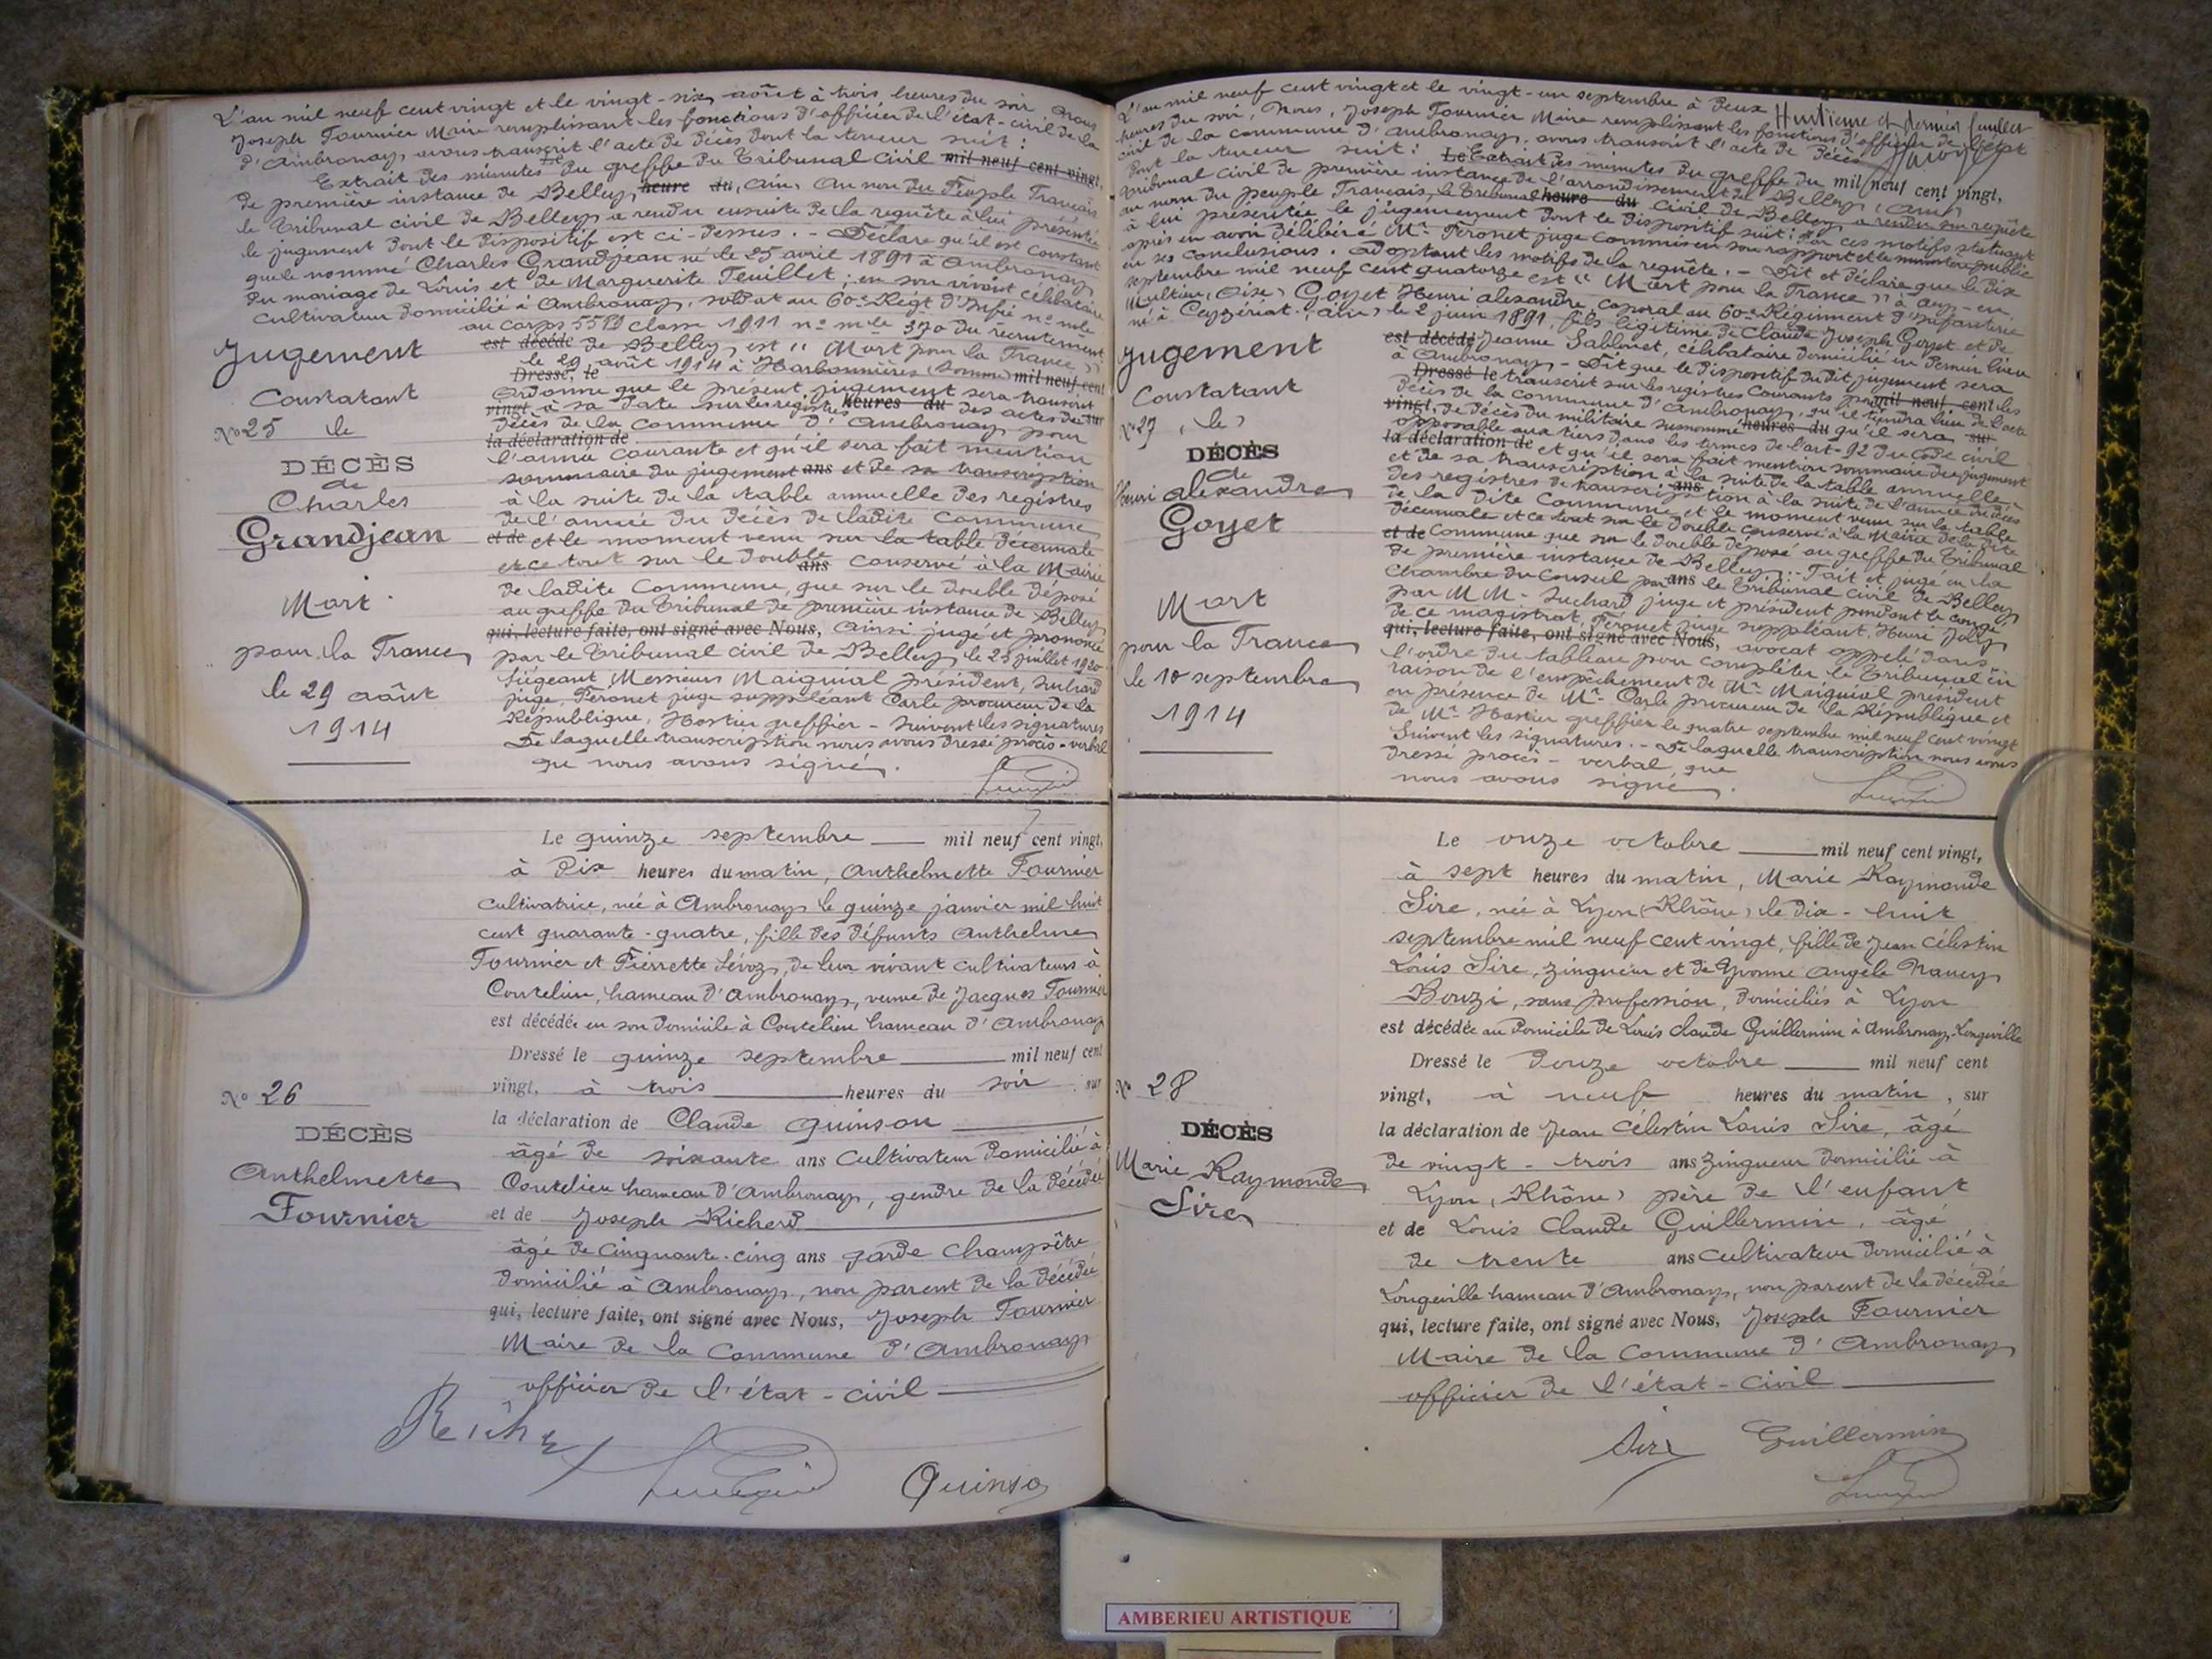 L'an mil neuf cent vingt et le vingt-six août à trois heures du soir nous
Joseph Fournier Maire remplissant les fonctions d'officier de l'état-civil de la
d'Ambronay, avons transcrit l'acte de décès dont la teneur suit :
Extrait des minutes du greffe du Tribunal Civil mil neuf cent vingt,
de première instance de Belley, heure du, Ain, Au nom du Peuple Français
le Tribunal civil de Belley a rendu ensuite de la requête à lui présentée
le jugement dont le dispositif est ci-dessus. - Déclare qu'il est constant
que le nommé Charles Grandjean né le 25 avril 1891 à Ambronay
du mariage de Louis et de Marguerite Feuillet ; en son vivant célibataire
cultivateur domicilié à Ambronay, soldat au 60e Régt d'Infie no mle
au corps 5589 classe 1911 no mle 370 du recrutement
est décédé de Belley, est "Mort pour la France"
le 29 août 1914 à Harbonnières (Somme) mil neuf cent
Dressé, le
Ordonne que le présent jugement sera transcrit
vingt, à sa date sur les registres heures du des actes de sur
décès de la commune d'Ambronay pour
la déclaration de
l'année courante et qu'il sera fait mention
sommaire du jugement ans et de sa transcription
à la suite de la table annuelle des registres
de l'année du décès de ladite commune
et de et le moment venu sur la table décennale
et ce tout sur le double ans conservé à la Mairie
de ladite Commune, que sur le double déposé
au greffe du Tribunal de première instance de Belley
qui, lecture faite, ont signé avec Nous, Ainsi jugé et prononcé
par le Tribunal civil de Belley le 23 juillet 1920
Siégeant Messieurs Maiguial président, Suchard
juge, Féronet juge suppléant Carle procureur de la
République, Hostier greffier - Suivent les signatures
De laquelle transcription nous avons dressé procès-verbal
que nous avons signé.
Jugement
Constatant
No 25 le
DÉCÈS
de
Charles
Grandjean
Mort
pour la France
le 29 août
1914
Le quinze septembre mil neuf cent vingt,
à dix heures du matin, Anthelmette Fournier
cultivatrice, née à Ambronay le quinze janvier mil huit
cent quarante-quatre, fille des défunts Anthelme
Fournier et Pierrette Sévoz, de leur vivant cultivateurs à
Coutelieu, hameau d'Ambronay, veuve de Jacques Fournier
est décédée en son domicile à Coutelieu hameau d'Ambronay
Dressé le quinze septembre mil neuf cent
vingt, à trois heures du soir, sur
la déclaration de Claude Quinson
âgé de soixante ans cultivateur domicilié à
Coutelieu hameau d'Ambronay, gendre de la décédée
et de Joseph Richerd
âgé de cinquante-cinq ans garde champêtre
domicilié à Ambronay, non parent de la décédée
qui, lecture faite, ont signé avec Nous, Joseph Fournier
Maire de la Commune d'Ambronay
officier de l'état-civil
No 26
DÉCÈS
Anthelmette
Fournier
Quinso
Huitième et dernier feuillet
L'an mil neuf cent vingt et le vingt-un septembre à deux
heures du soir, Nous, Joseph Fournier Maire remplissant les fonctions d'officier de l'état
civil de la commune d'Ambronay, avons transcrit l'acte de décès
dont la teneur suit : Le Extrait des minutes du greffe du mil neuf cent vingt,
Tribunal civil de première instance de l'arrondissement de Belley (Ain)
au nom du peuple Français, le Tribunal heure du civil de Belley a rendu sur requête
à lui présentée le jugement dont le dispositif suit : Par ces motifs statuant
après en avoir délibéré Mr Féronet juge commis en son rapport et le ministère public
en ses conclusions. Adoptant les motifs de la requête. - Dit et déclare que le dix
septembre mil neuf cent quatorze est "Mort pour la France" à Acy-en-
Multien, (Oise) Goyet Henri Alexandre caporal au 60e Régiment d'Infanterie
né à Ceyzériat (Ain) le 2 juin 1891, fils légitime de Claude Joseph Goyet et de
est décédé Jeanne Sablonet, célibataire domicilié en dernier lieu
à Ambronay - Dit que le dispositif dudit jugement sera
Dressé le transcrit sur les registres courants mil neuf cent les
décès de la commune d'Ambronay, qu'il tiendra lieu de l'acte
vingt, de décès du militaire susnommé heures du qu'il sera sur
opposable aux tiers dans les termes de l'art-92 du code civil
la déclaration de et qu'il sera fait mention sommaire du jugement
et de sa transcription à la suite de la table annuelle
des registres de transcription ans à la suite de l'année du décès
de la dite Commune et le moment venu sur la table
décennale et ce tout sur le double conservé à la Mairie de la dite
et de Commune que sur le double déposé au greffe du Tribunal
de première instance de Belley. - Fait et jugé en la
chambre du conseil par ans le Tribunal civil de Belley
par MM. Suchard juge et président pendant le congé
de ce magistrat, Féronet juge suppléant, Henri Jolly
qui, lecture faite, ont signé avec Nous, avocat appelé dans
l'ordre du tableau pour compléter le Tribunal en
raison de l'empêchement de Mr Maiguial président
en présence de Mr Carle procureur de la République et
de Mr Hostier greffier le quatre septembre mil neuf cent vingt
Suivent les signatures. - De laquelle transcription nous avons
dressé procès-verbal que
nous avons signé.
Jugement
Constatant
No 27 (le)
DÉCÈS
de
Henri Alexandre
Goyet
Mort
pour la France
le 10 septembre
1914
Le onze octobre mil neuf cent vingt,
à sept heures du matin, Marie Raymonde
Sire, née à Lyon (Rhône) le dix-huit
septembre mil neuf cent vingt, fille de Jean Célestin
Louis Sire, zingueur et de Yvonne Angèle Nancy
Bouzi, sans profession, domiciliés à Lyon
est décédée au domicile de Louis Claude Guillermin à Ambronay, Longeville
Dressé le douze octobre mil neuf cent
vingt, à neuf heures du matin, sur
la déclaration de Jean Célestin Louis Sire, âgé
de vingt-trois ans zingueur domicilié à
Lyon (Rhône) père de l'enfant
et de Louis Claude Guillermin, âgé
de trente ans cultivateur domicilié à
Longeville hameau d'Ambronay, non parent de la décédée
qui, lecture faite, ont signé avec Nous, Joseph Fournier
Maire de la Commune d'Ambronay
officier de l'état-civil
No 28
DÉCÈS
Marie Raymonde
Sire
Sire Guillermin
AMBERIEU ARTISTIQUE